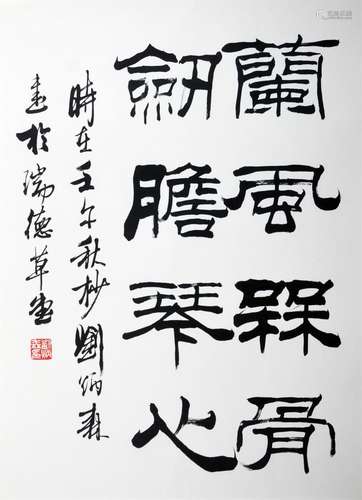 蘭風槑骨
劒膽琴心
時在壬午秋杪劉炳森
書於瑞德草堂